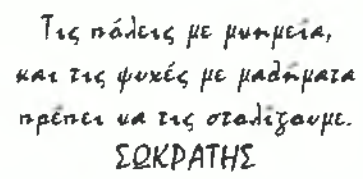 Τις πόλεις με μνημεία,
και τις ψυχές με μαθήματα
πρέπει να τις στολίζουμε.
ΣΩΚΡΑΤΗΣ